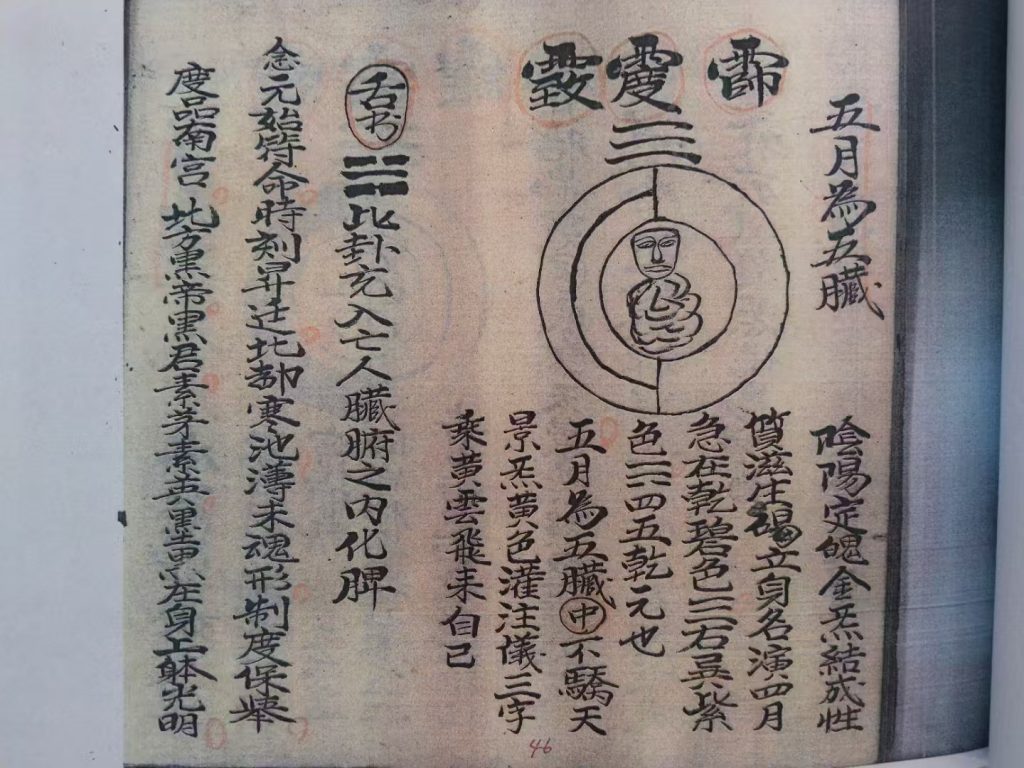 五月為五臟
陰陽定魄金炁結成性
質滋生 立身名演四月
急在乾碧色三右巽紫
色三四五乾元也
五月為五臟中不驕天
景炁黃色灌注儀三字
乘黃雲飛来自己
舌书
此卦充入亡人臟腑之内化脾
念元始符命時刻昇迁北都寒池薄未魂形制度保舉
度品南宮北方黑帝黑君素芽素英黑黄 在身上躰光明
46